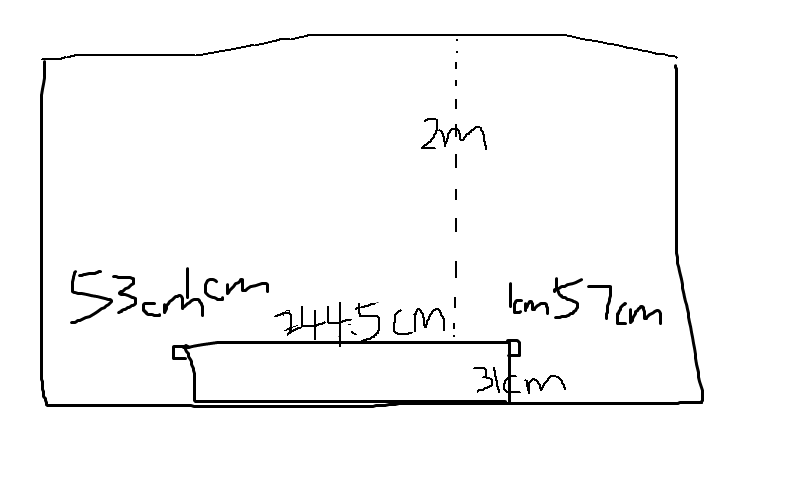 2m
53cm 1cm
244.5cm
1cm 57cm
31cm